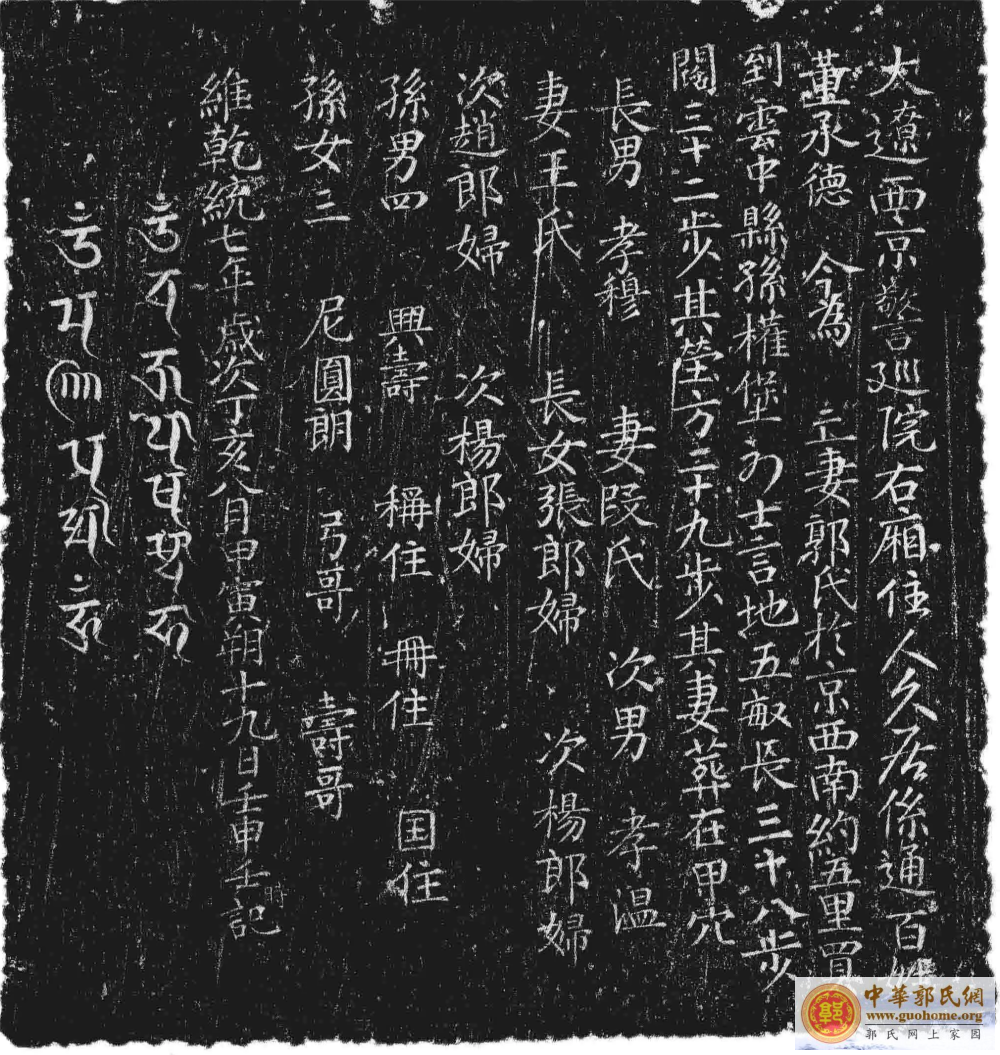 大遼西京警巡院右廂住人久居係通百姓
董承德 今為 亡妻郭氏於京西南約五里買
到雲中縣孫權堡刘士言地五畝長三十八步
闊三十二步其塋方二十九步其妻葬在甲穴
長男 孝穆 妻段氏 次男 孝温
妻王氏 長女張郎婦 次楊郎婦
次趙郎婦 次楊郎婦
孫男四 興壽 稱住 冊住 国住
孫女三 尼圓朗 弓哥 壽哥
維乾統七年歲次丁亥八月甲寅朔十九日壬申壬時記
中華郭氏網
www.guohome.org
郭氏网上家园